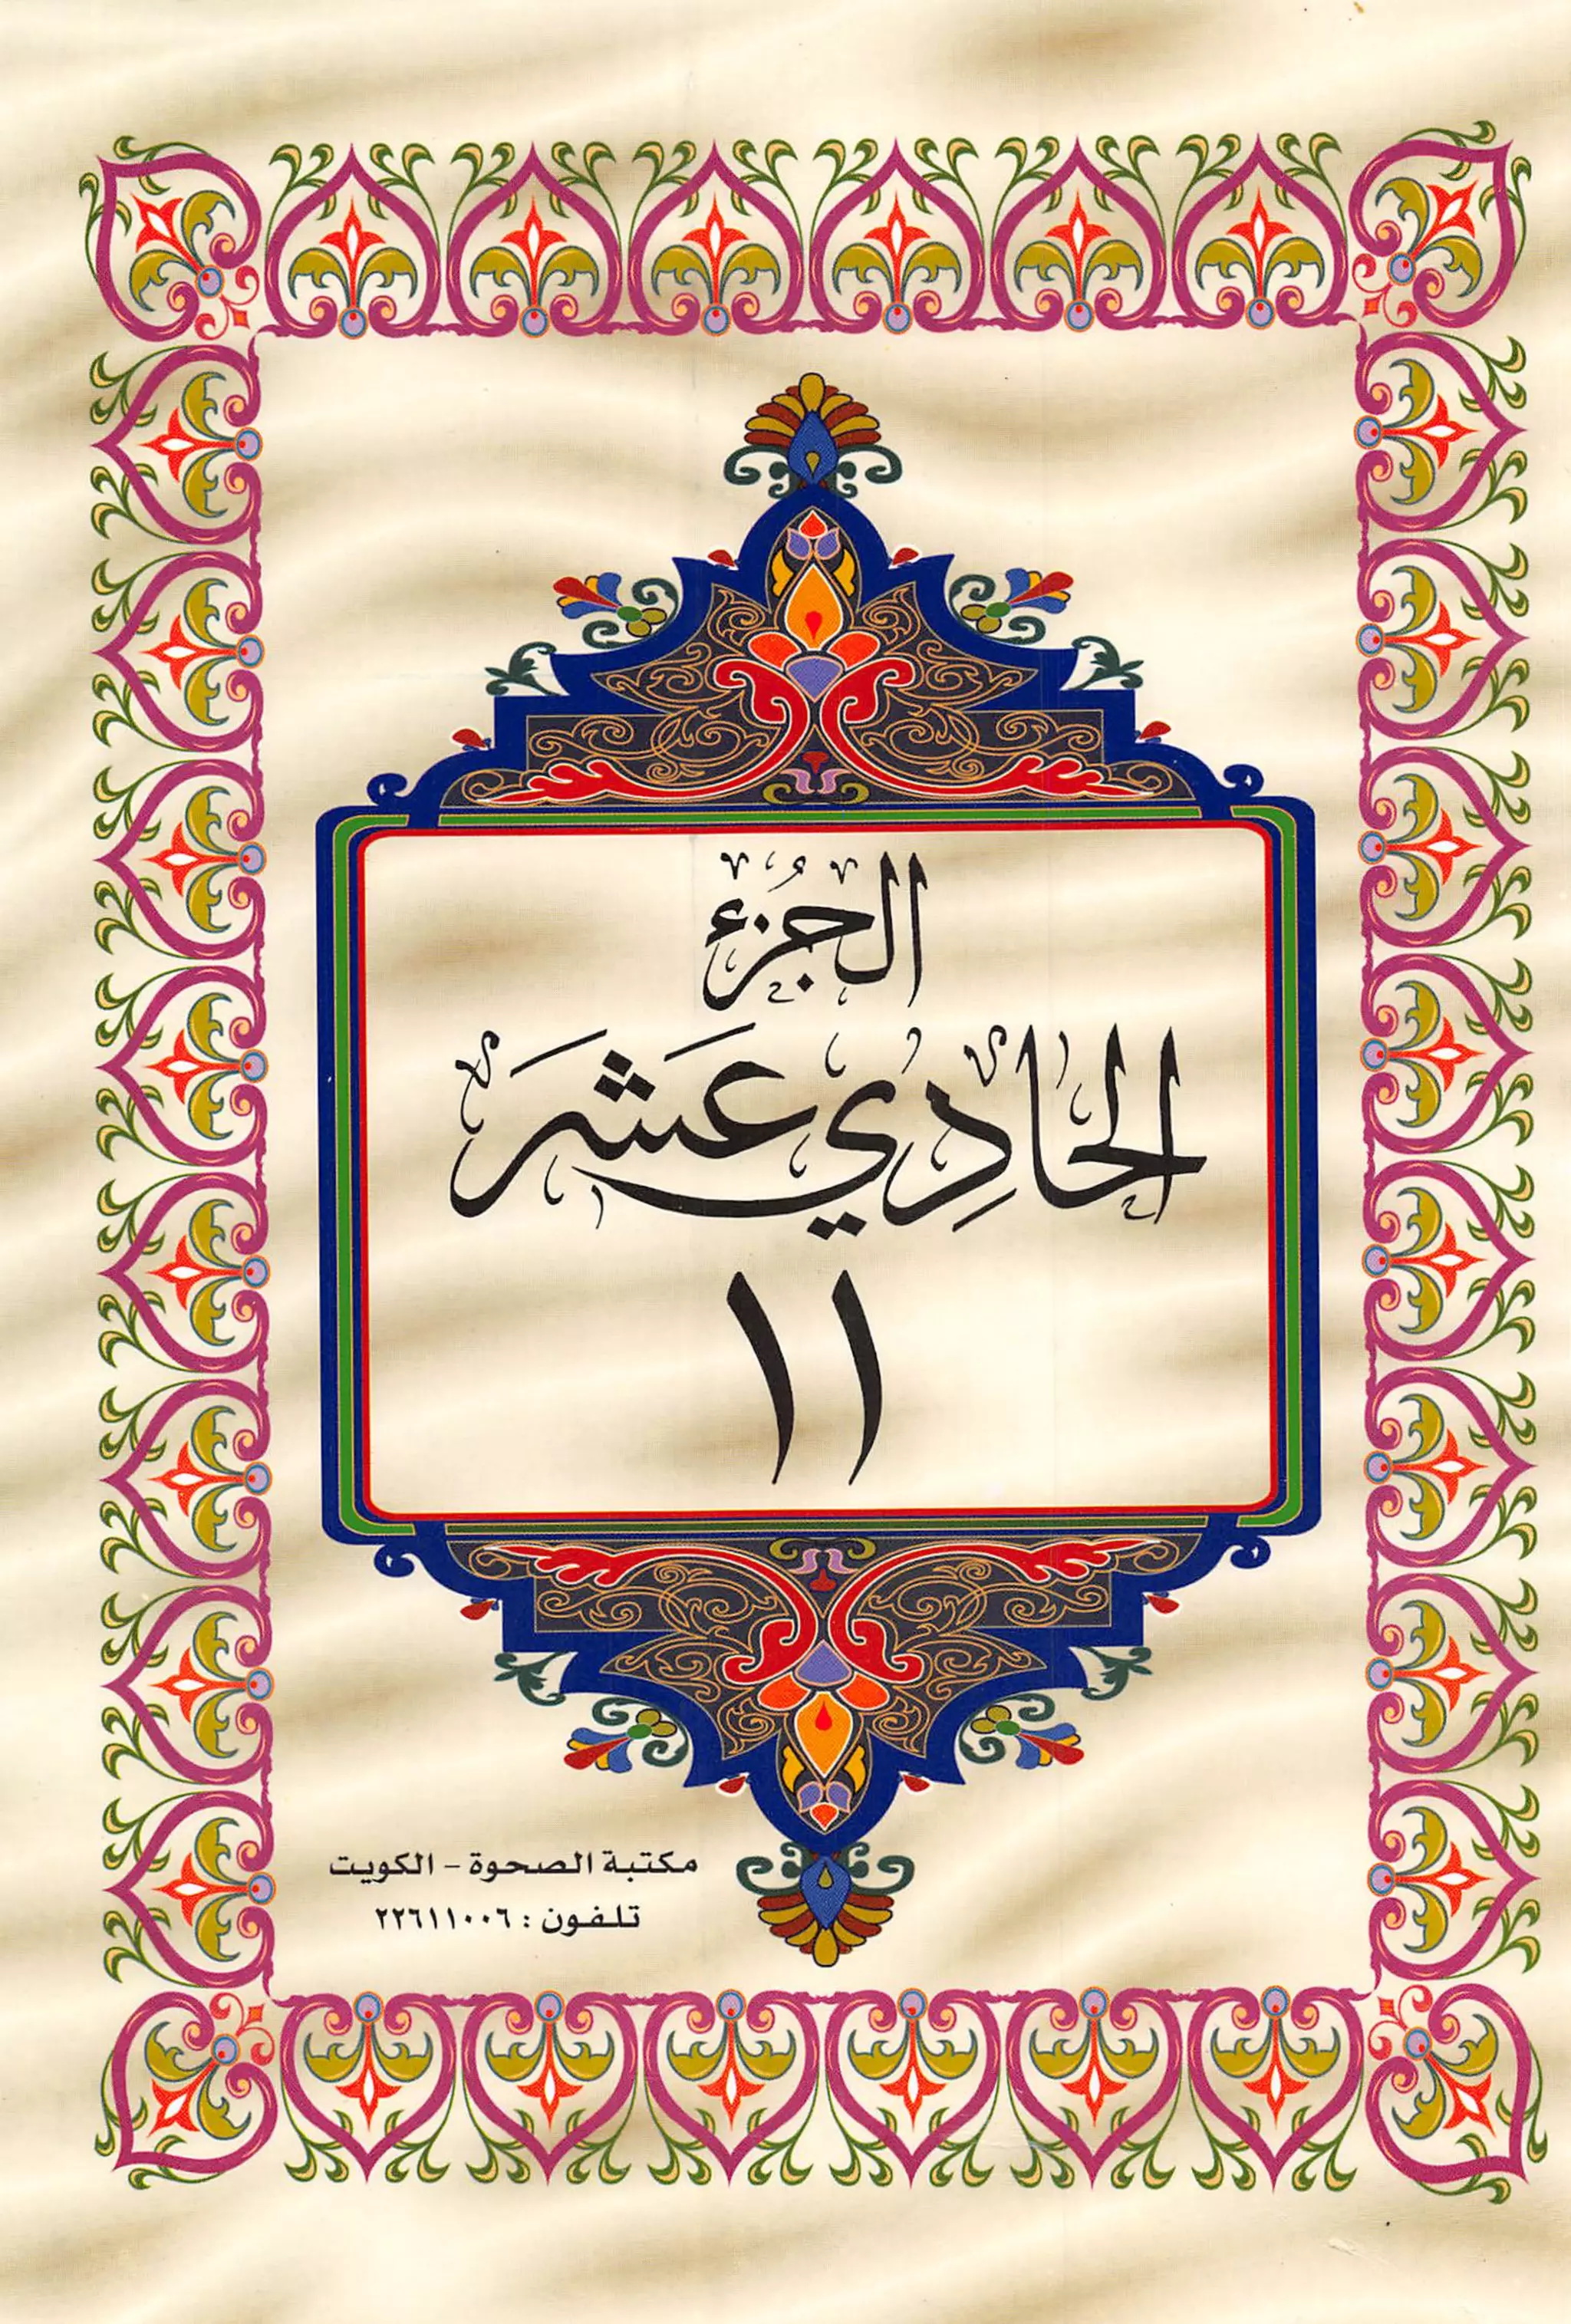 الجُزء
الحَادِي عَشَرَ
١١
مكتبة الصحوة - الكويت
تلفون : ٢٢٦١١٠٠٦